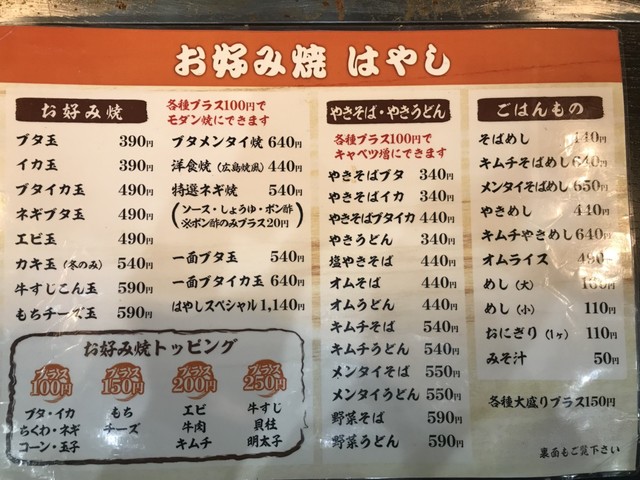 お好み焼 はやし
お好み焼
ブタ玉 390円
イカ玉 390円
ブタイカ玉 490円
ネギブタ玉 490円
エビ玉 490円
カキ玉(冬のみ) 540円
牛すじこん玉 590円
もちチーズ玉 590円
各種プラス100円で
モダン焼にできます
ブタメンタイ焼 640円
洋食焼(広島焼風) 440円
特選ネギ焼 540円
(ソース・しょうゆ・ポン酢
※ポン酢のみプラス20円)
一面ブタ玉 540円
一面ブタイカ玉 640円
はやしスペシャル 1,140円
お好み焼トッピング
プラス100円
ブタ・イカ
ちくわ・ネギ
コーン・玉子
プラス150円
もち
チーズ
プラス200円
エビ
牛肉
キムチ
プラス250円
牛すじ
貝柱
明太子
やきそば・やきうどん
各種プラス100円で
キャベツ増にできます
やきそばブタ 340円
やきそばイカ 340円
やきそばブタイカ 440円
やきうどん 340円
塩やきそば 440円
オムそば 440円
オムうどん 440円
キムチそば 540円
キムチうどん 540円
メンタイそば 550円
メンタイうどん 550円
野菜そば 590円
野菜うどん 590円
ごはんもの
そばめし 440円
キムチそばめし 640円
メンタイそばめし 650円
やきめし 440円
キムチやきめし 640円
オムライス 490円
めし(大) 160円
めし(小) 110円
おにぎり(1ヶ) 110円
みそ汁 50円
各種大盛りプラス150円
裏面もご覧下さい